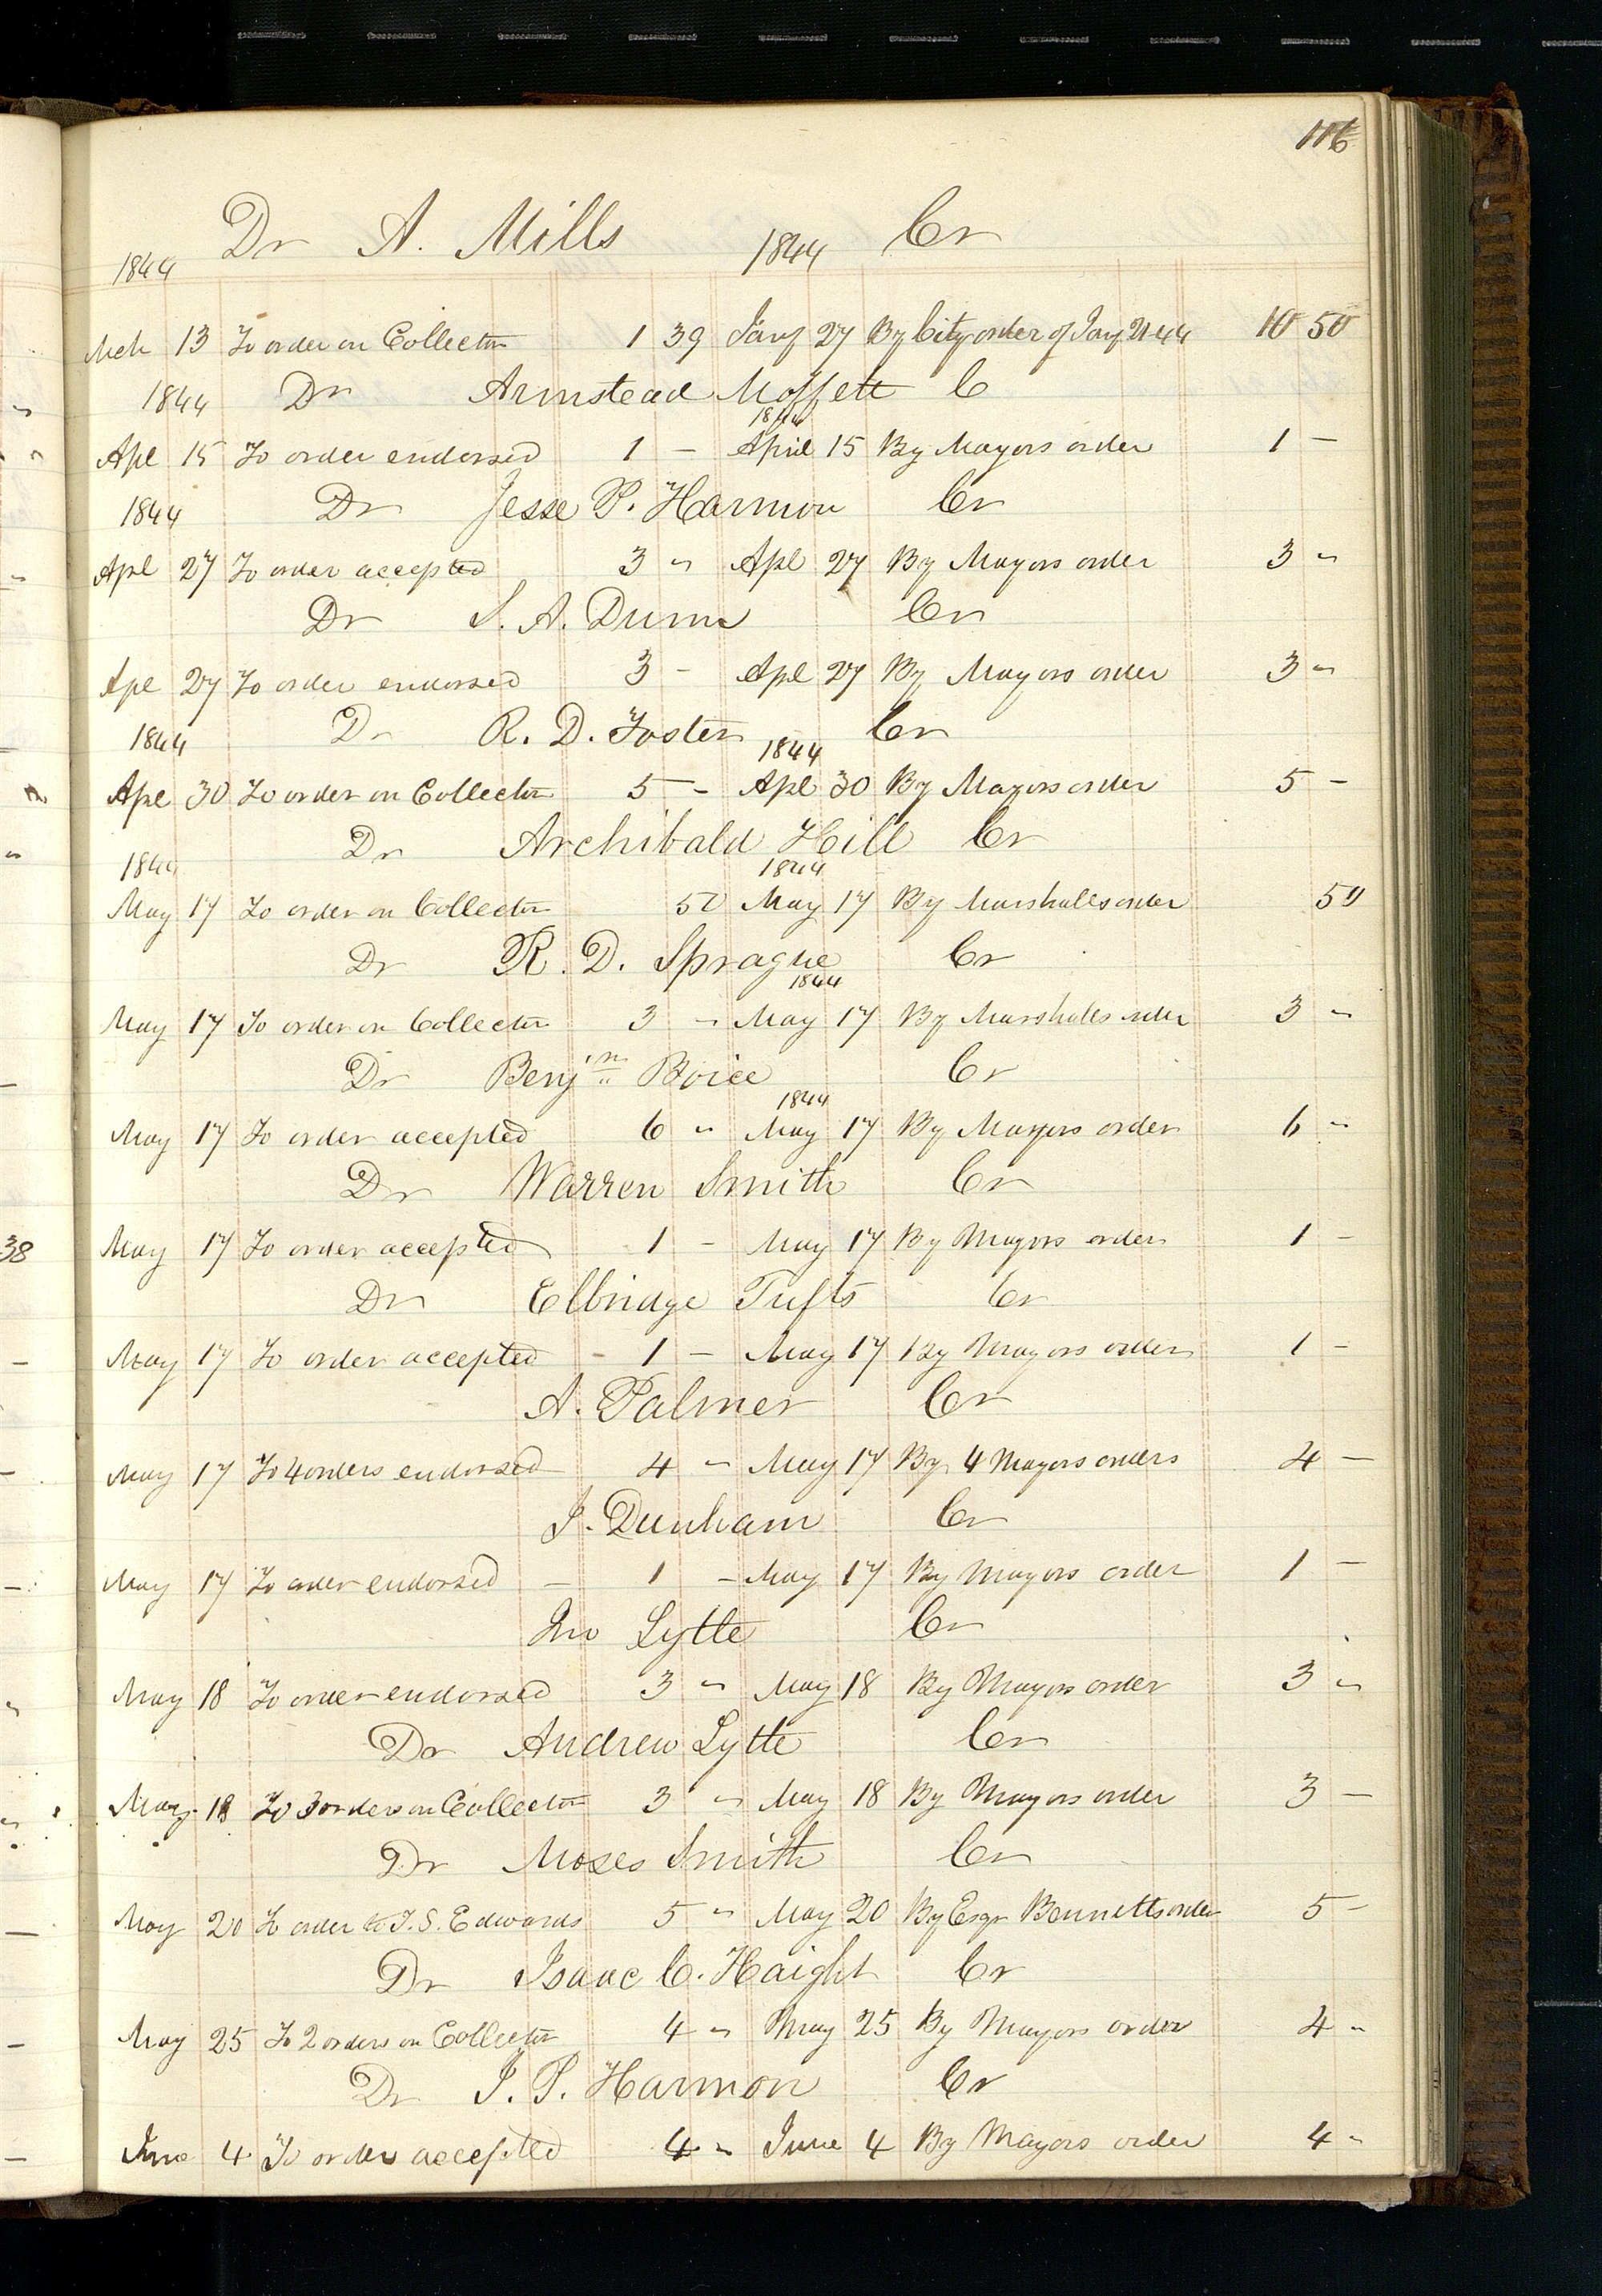 116
Dr A. Mills Cr
1844 1844
Mch 13 To order on Collector 1 39 Jany 27 By City order of Jany 21 44 10 50
1844 Dr Armstead Moffett C
1844
Apl 15 To order endorsed 1 - April 15 By Mayors order 1 -
1844 Dr Jesse P. Harmon Cr
Apl 27 To order accepted 3 " Apl 27 By Mayors order 3 "
Dr S. A. Dunn Cr
Apl 27 To order endorsed 3 - Apl 27 By Mayors order 3 "
1844 Dr R. D. Foster Cr
1844
Apl 30 To order on Collector 5 - Apl 30 By Mayors order 5 -
Dr Archibald Hill Cr
1844 1844
May 17 To order on Collector 50 May 17 By Marshalls order 50
Dr R. D. Sprague Cr
1844
May 17 To order on Collector 3 " May 17 By Marshalls order 3 "
Dr Benjin Boice Cr
1844
May 17 To order accepted 6 " May 17 By Mayors order 6 "
Dr Warren Smith Cr
38
May 17 To order accepted 1 - May 17 By Mayors order 1 -
Dr Elbridge Tufts Cr
May 17 To order accepted - 1 - May 17 By Mayors order 1 -
A. Palmer Cr
May 17 To 4 orders endorsed 4 " May 17 By 4 Mayors orders 4 -
J. Dunham Cr
May 17 To order endorsed - 1 - May 17 By Mayors order 1 -
Jno Lytle Cr
May 18 To order endorsed 3 " May 18 By Mayors order 3 "
Dr Andrew Lytle Cr
May 18 To 3 orders on Collector 3 " May 18 By Mayors order 3 -
Dr Moses Smith Cr
May 20 To order to T. S. Edwards 5 " May 20 By Esqr Bennetts order 5 -
Dr Isaac C. Haight Cr
May 25 To 2 orders on Collector 4 " May 25 By Mayors order 4 "
Dr J. P. Harmon Cr
June 4 To order accepted 4 " June 4 By Mayors order 4 "